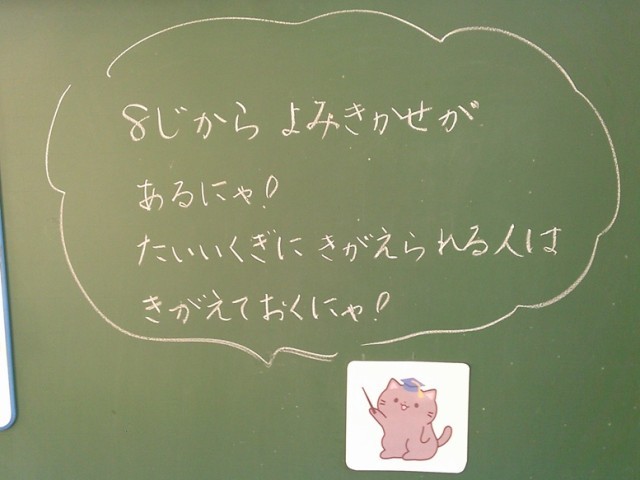 8じから よみきかせが
あるにゃ！
たいいくぎに きがえられる人は
きがえておくにゃ！